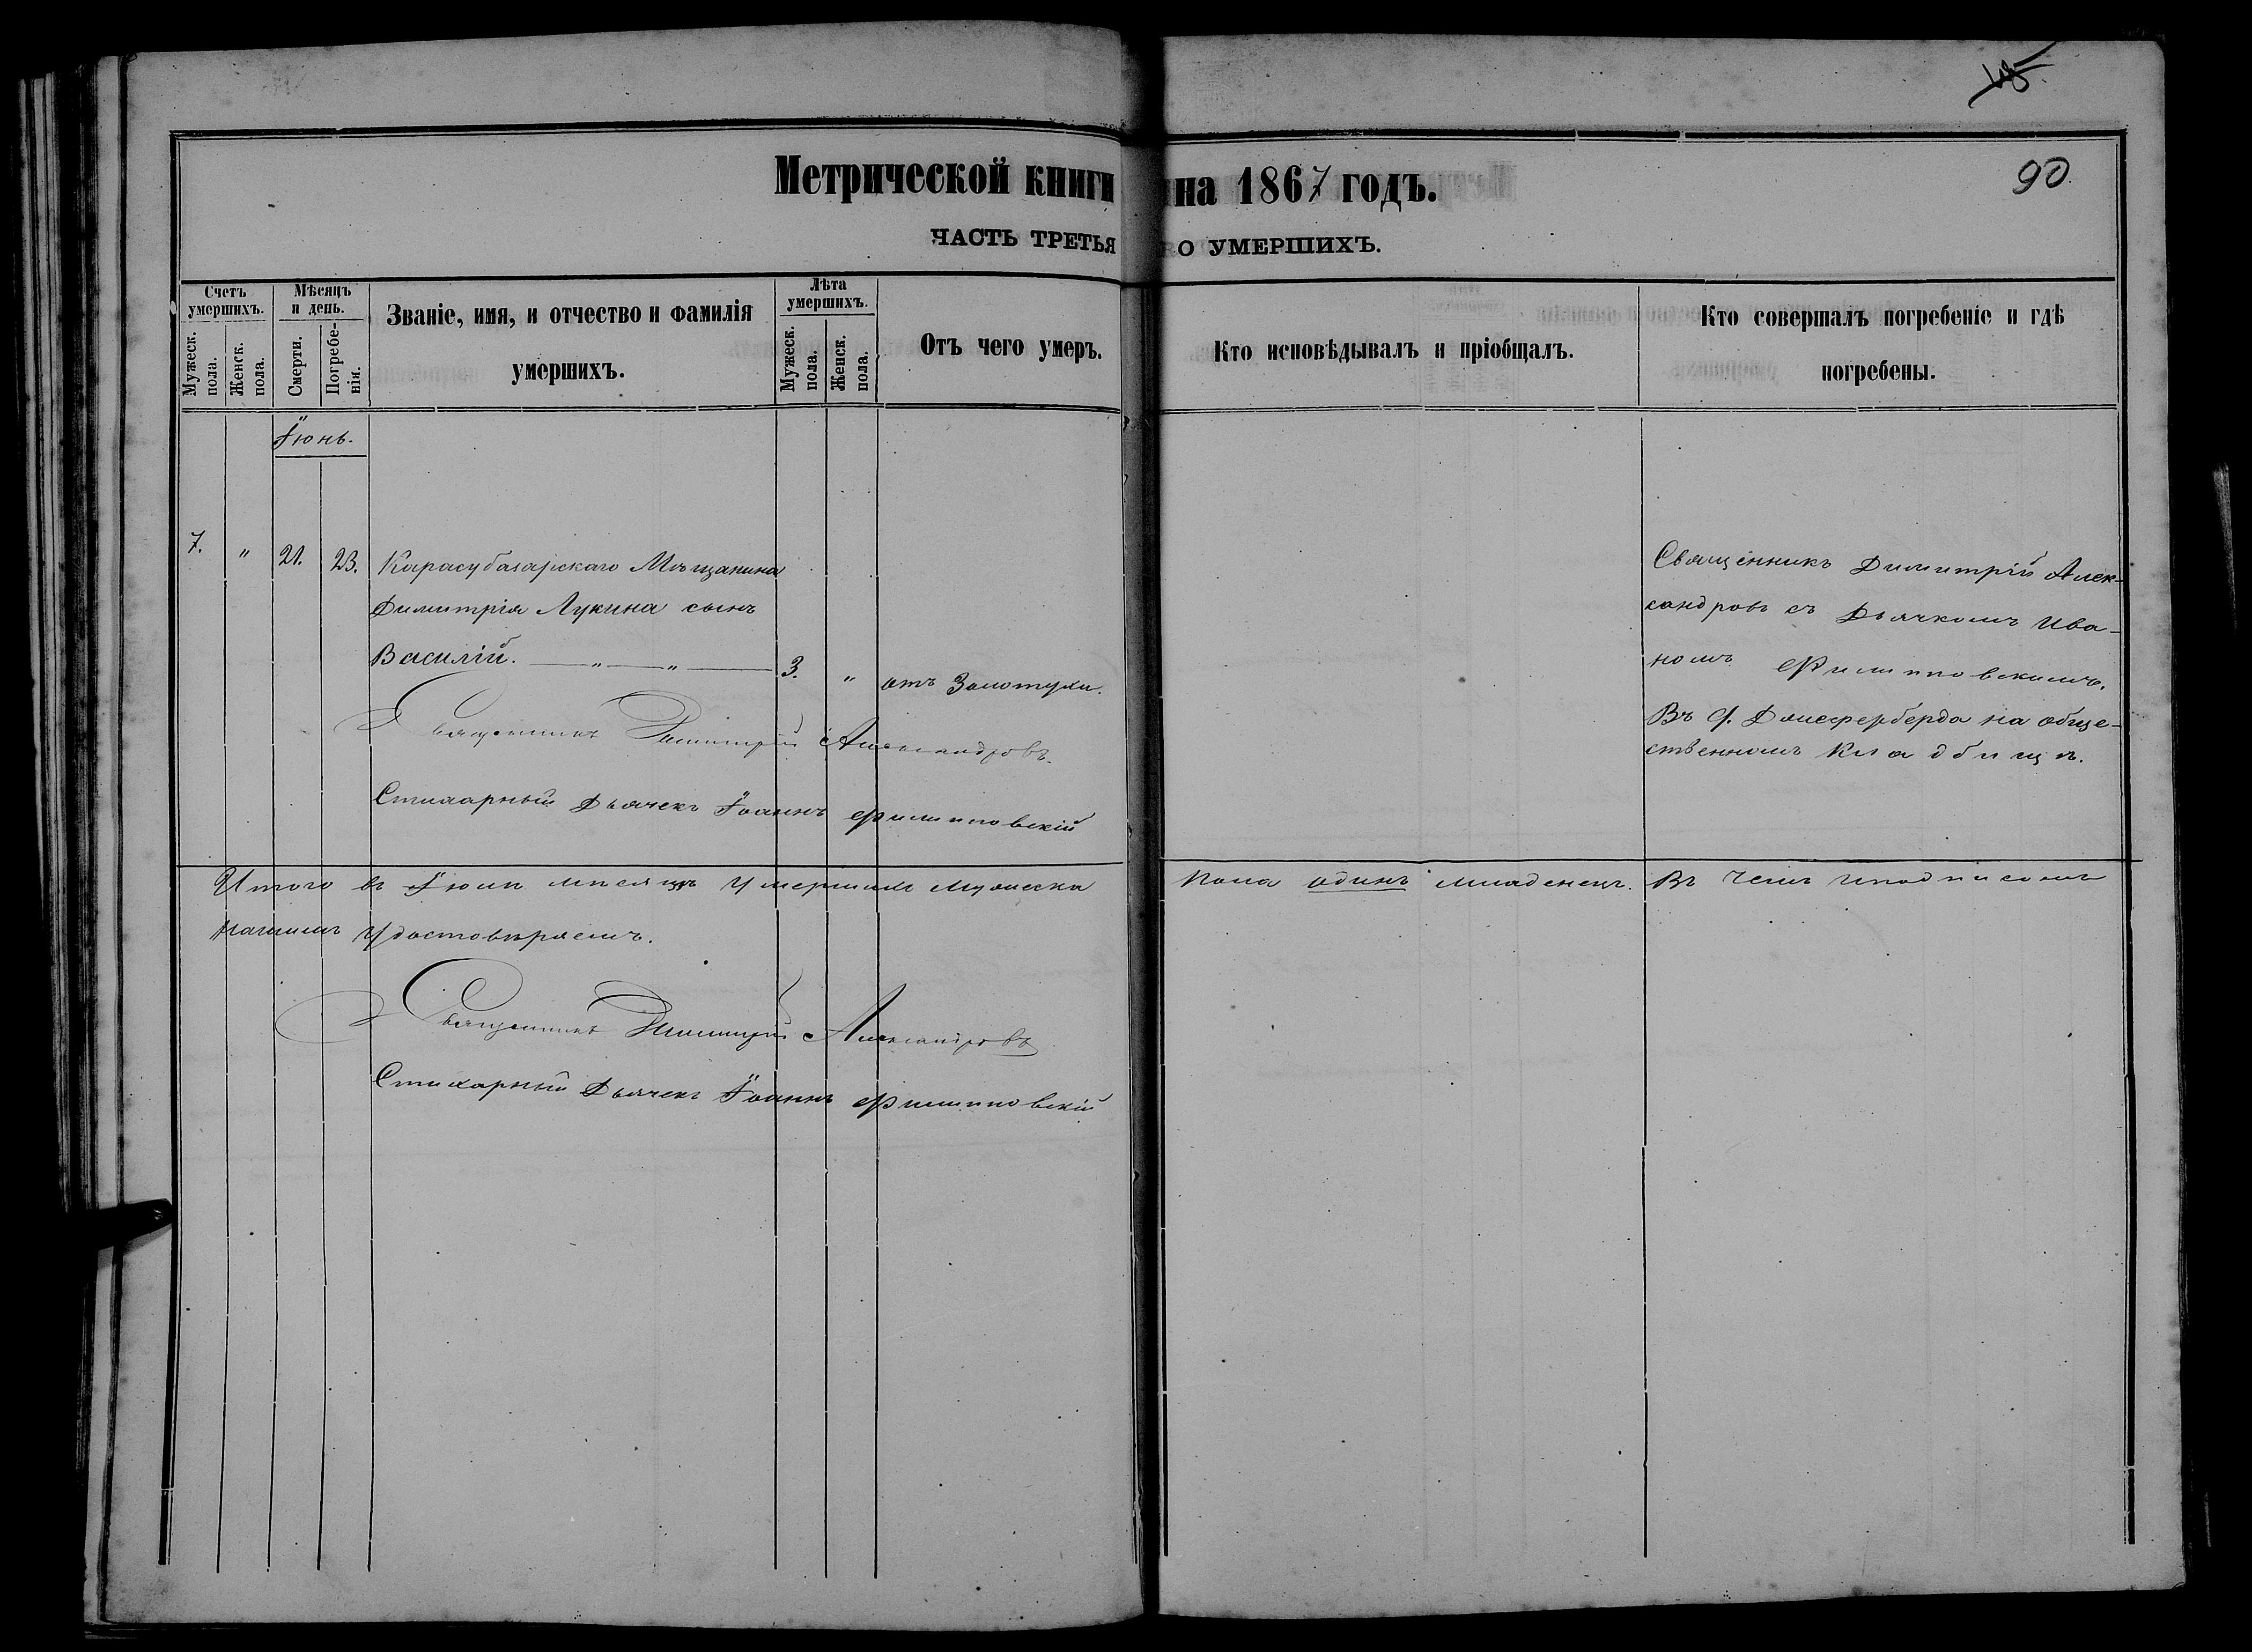 90.
Метрической книги на 1867 годъ.
ЧАСТЬ ТРЕТЬЯ О УМЕРШИХЪ.
Счетъ умершихъ.
Мужеск. пола.
Женск. пола.
Мѣсяцъ и день.
Смерти.
Погребенія.
Званіе, имя, и отчество и фамилія
умершихъ.
Лѣта умершихъ.
Мужеск. пола.
Женск. пола.
Отъ чего умеръ.
Кто исповѣдывалъ и пріобщалъ.
Кто совершалъ погребеніе и гдѣ
погребены.
Іюнь.
7. " 21. 23. Карасубазарскаго Мѣщанина
Димитрія Лукина сынъ
Василій. — " — " — 3. " отъ Золотухи.
Священникъ Димитрій Александровъ.
Стихарный Дьячекъ Іоаннъ Филиповскій
Священникъ Димитрій Алек-
сандровъ съ Дьячкомъ Ива-
номъ Филиповскимъ.
Въ на обще-
ственномъ Кладбищѣ.
Итого въ Іюнѣ мѣсяцѣ умершихъ мужеска пола одинъ младенецъ. Въ чемъ и подписомъ
нашимъ удостовѣряемъ.
Священникъ Димитрій Александровъ
Стихарный Дьячекъ Іоаннъ Филиповскій